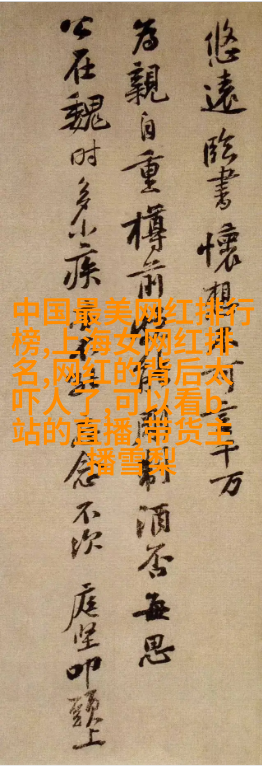 悠遠臨書懷想不可言千万
為親自重樽前能剛制酒否每思
公在魏時多小疾念不次 庭堅叩頭上
中国最美网红排行
榜,上海女网红排
名,网红的背后太
吓人了,可以看b
站的直播,带货主
播雪梨